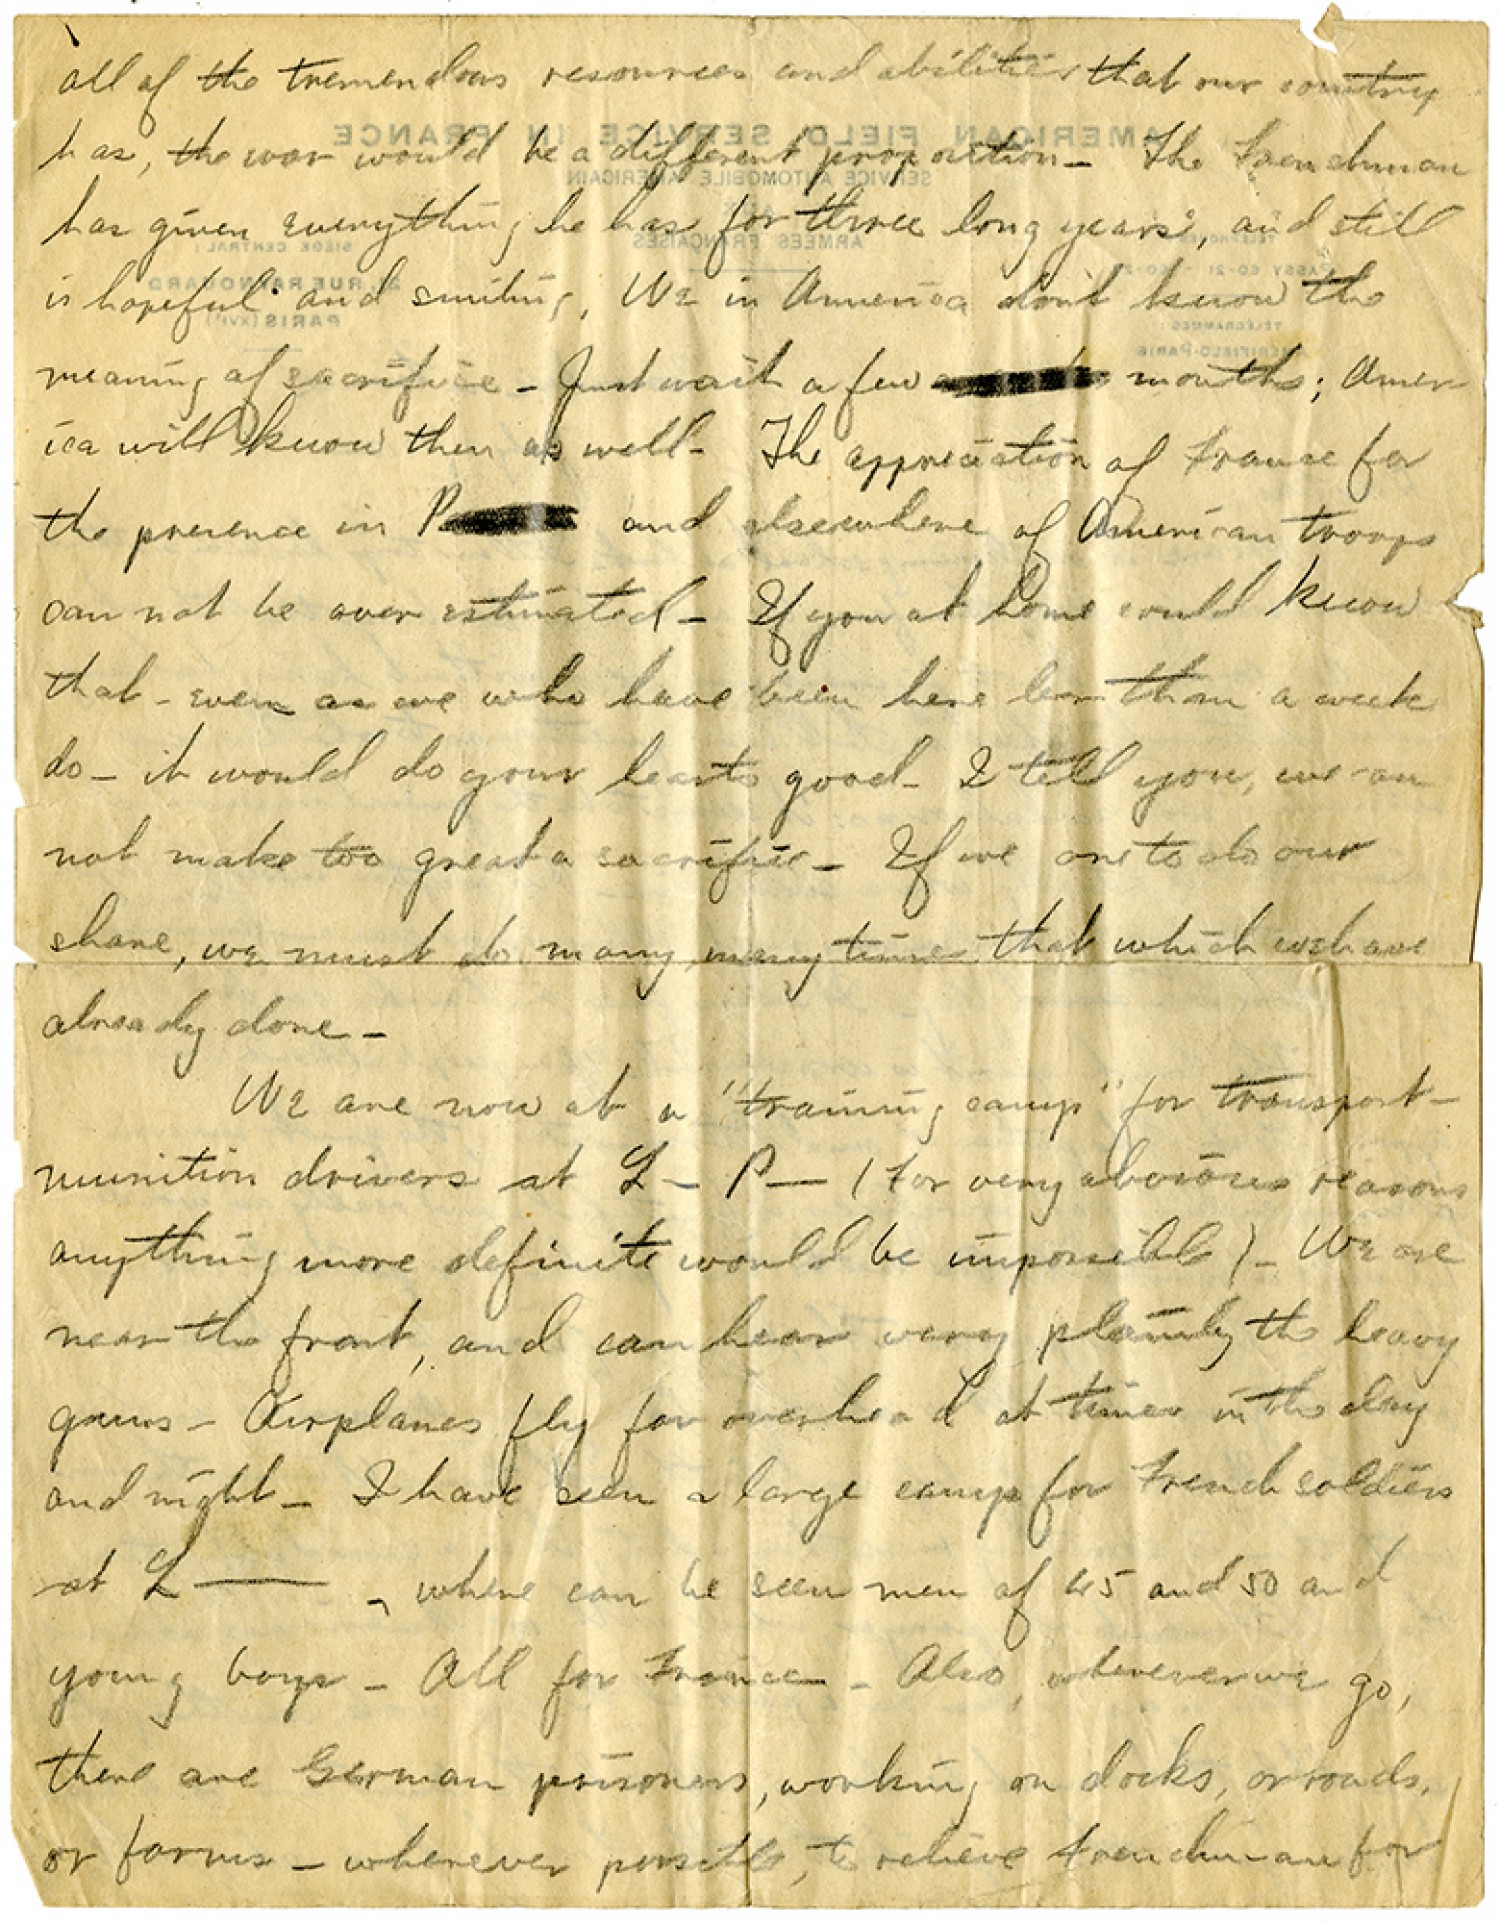 all of the tremendous resources and abilities that our country
has, the war would be a different proposition – The Frenchman
has given everything he has for three long years, and still
is hopeful and smiling, We in America don't know the
meaning of sacrifice – Just wait a few months; Amer-
ica will know then as well – The appreciation of France for
the presence in P and elsewhere of American troops
can not be over estimated – If you at home could know
that – even as we who have been here less than a week
do – it would do your hearts good – I tell you, we can
not make too great a sacrifice – If we are to do our
share, we must do many, many times that which we have
already done –
We are now at a "training camp" for transport-
munition drivers at L – P – (For very obvious reasons
anything more definite would be impossible) – We are
near the front, and can hear very plainly the heavy
guns – Airplanes fly far overhead at times in the day
and night – I have seen a large camp for French soldiers
at L ——, where can be seen men of 45 and 50 and
young boys – All for France – Also, wherever we go,
there are German prisoners, working on docks, or roads,
or farms – wherever possible, to relieve Frenchman for
AMERICAN FIELD SERVICE IN FRANCE
SERVICE AUTOMOBILE AMÉRICAIN
ARMÉES FRANÇAISES
SIÈGE CENTRAL:
21, RUE RAYNOUARD
PARIS (XVIe)
TÉLÉGRAMMES:
AMERIFIELD-PARIS